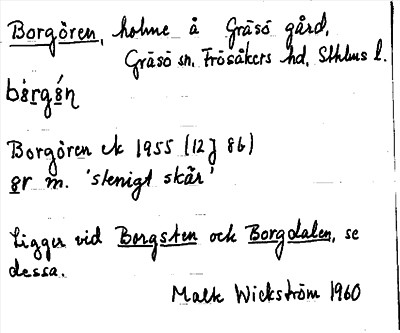 Borgören, holme å Gräsö gård,
Gräsö sn, Frösåkers hd, Sthlms l.
Borgören ek 1955 (12J 8b)
ör m. 'stenigt skär'
Ligger vid Borgsten och Borgdalen, se
dessa.
Malte Wickström 1960